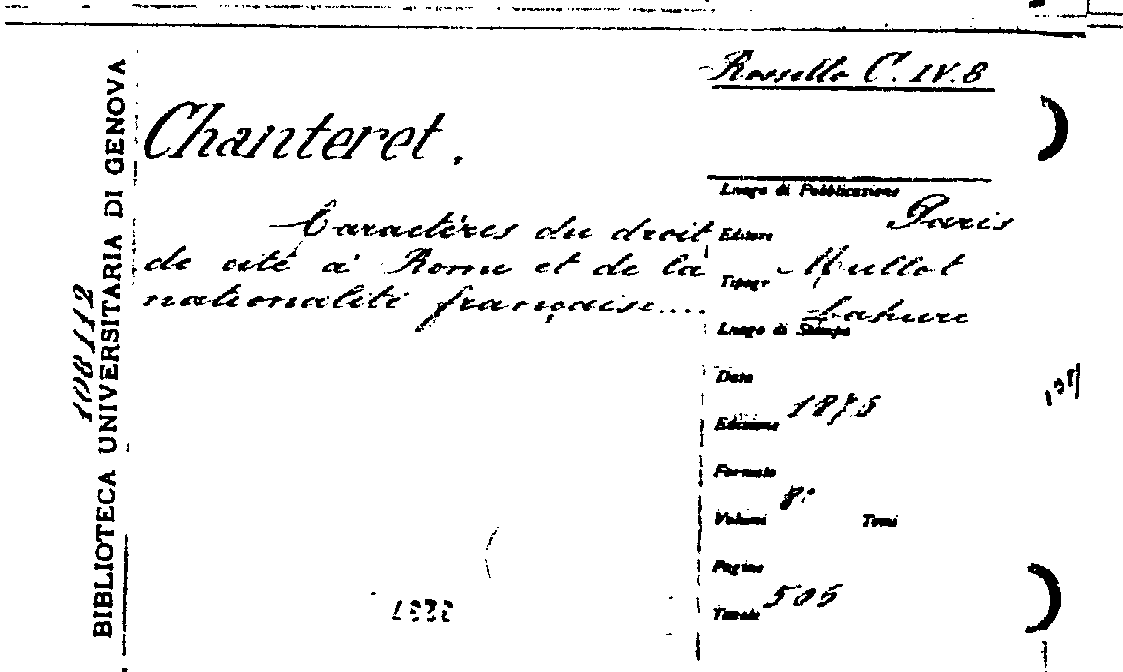 Rossello C. IV. 8
Chanteret.
Caractères du droit
de cité à Rome et de la
nationalité française....
Luogo di Pubblicazione
Paris
Editore
Mullot
Tipogr
Lahure
Luogo di Stampa
Data
1875
Edizione
Formato
8°
Volumi Tomi
Pagine
505
Tavole
BIBLIOTECA UNIVERSITARIA DI GENOVA
108112